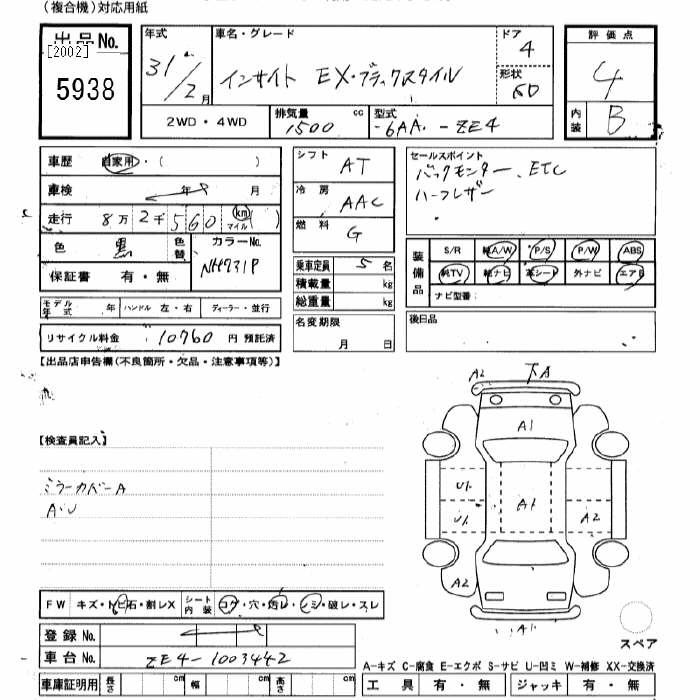 (複合機)対応用紙
出品No.
[2002]
5938
年式 31/2月
車名・グレード インサイト EX・ブラックスタイル
ドア 4
形状 5D
評価点 4
内装 B
2WD・4WD
排気量 1500 cc
型式 -6AA -ZE4
車歴 自家用・( )
車検 年 月
走行 8万2千560 km マイル ( )
色 黒 色替
カラーNo. NH731P
保証書 有・無
シフト AT
冷房 AAC
燃料 G
乗車定員 5名
積載量 kg
総重量 kg
セールスポイント
バックモニター、ETC
ハーフレザー
装備品
S/R 純A/W P/S P/W ABS
純TV 純ナビ 革シート 外ナビ エアB
ナビ型番:
モデル年式 年 ハンドル 左・右 ディーラー・並行
リサイクル料金 10760 円 預託済
名変期限 月 日
後日品
【出品店申告欄(不良箇所・欠品・注意事項等)】
【検査員記入】
ミラーカバーA
A・U
A2 下A
A1
U1
U1
A1
A2
A2
A1
スペア
FW キズ・トビ石・割レX
シート内装 コゲ・穴・汚レ・シミ・破レ・スレ
登録No.
車台No. ZE4-1003442
車庫証明用 長さ cm 幅 cm 高さ cm
A-キズ C-腐食 E-エクボ S-サビ U-凹ミ W-補修 XX-交換済
工具 有・無 ジャッキ 有・無